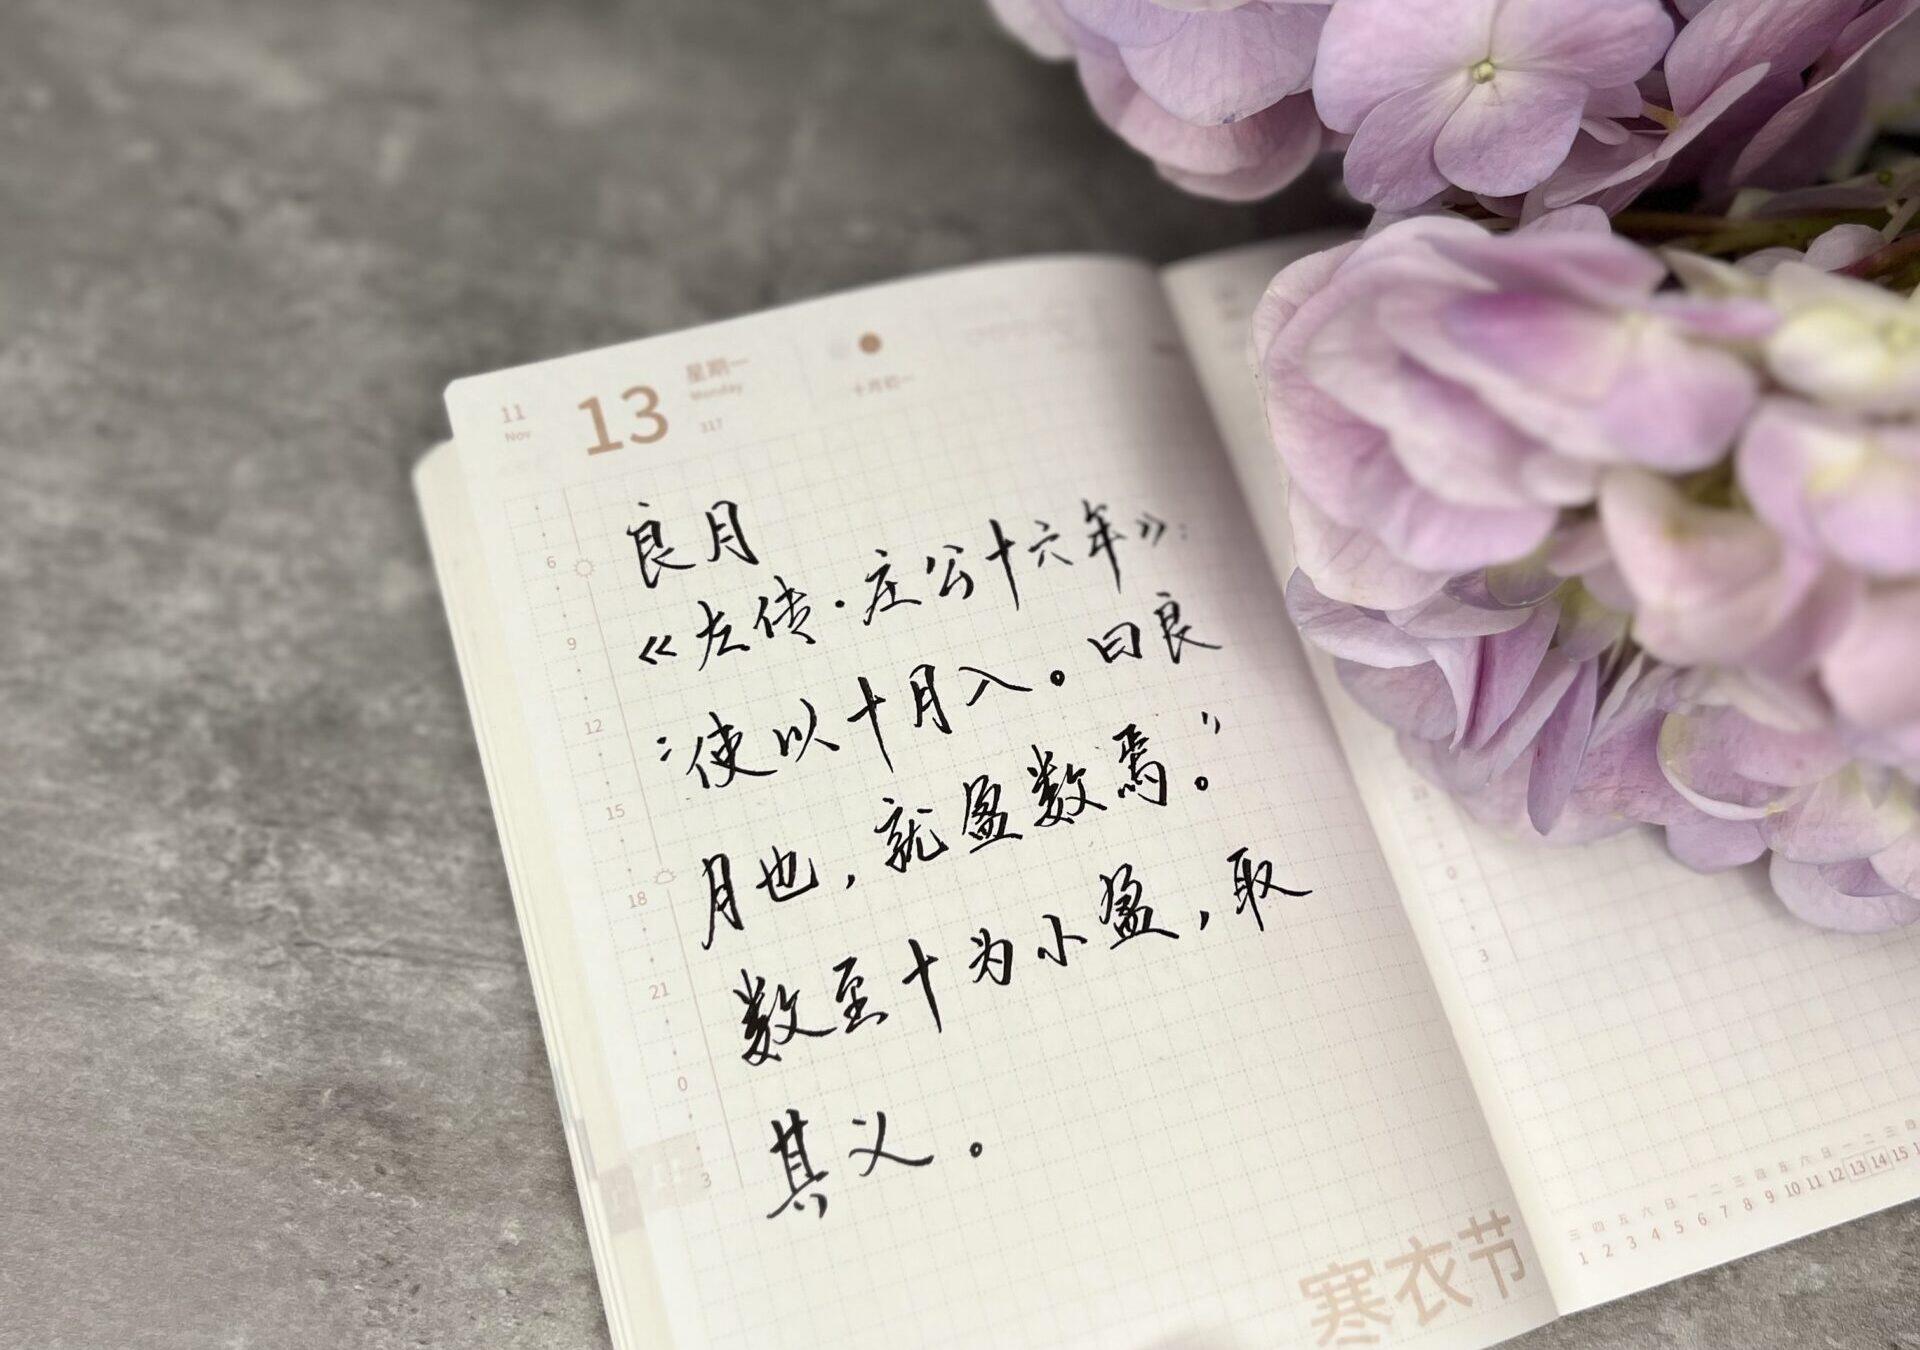 11
Nov
13
星期一
Monday
317
十月初一
良月
《左传·庄公十六年》：
“使以十月入。曰良
月也，就盈数焉。”
数至十为小盈，取
其义。
6
9
12
15
18
21
0
3
寒衣节
0
3
三 四 五 六 日 一 二 三 四 五 六 日 一 二 三 四
1 2 3 4 5 6 7 8 9 10 11 12 13 14 15